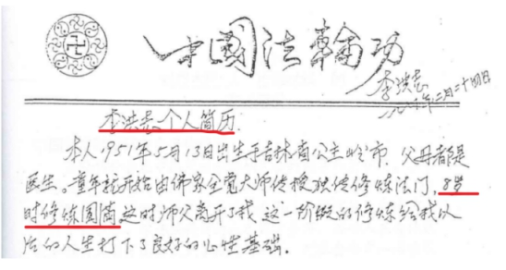 中國法輪功
李洪志
李洪志个人简历
本人1951年5月13日出生于吉林省公主岭市,父母都是
医生。童年起开始由佛家全觉大师传授独传修炼法门,8岁
时修炼圆满 这时师父离开了我,这一阶段的修炼给我以
后的人生打下了良好的心性基础。